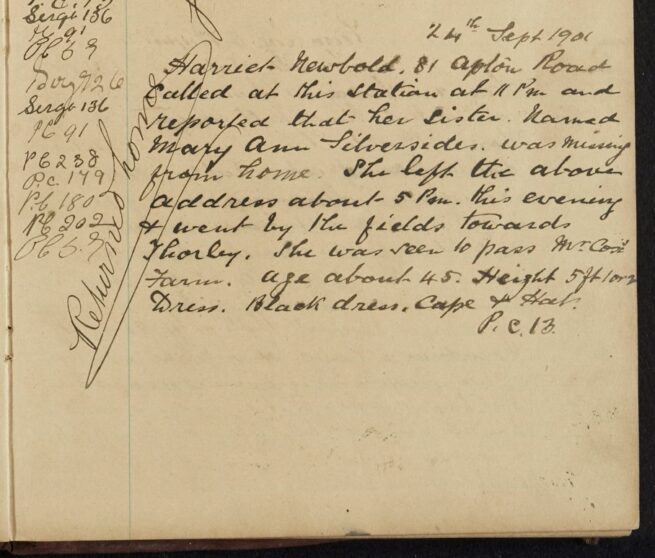 Sergt 136
PC 91
PC 59
Sergt 26
Sergt 136
PC 91
PC 238
P.C. 179
P.C 180
PC 202
PC 59
Returned home
24th Sept 1901
Harriet Newbold. 81 Apton Road
Called at this Station at 11 Pm and
reported that her Sister. Named
Mary Ann Silversides. was missing
from home. She left the above
address about 5 Pm. this evening
& went by the fields towards
Thorley. She was seen to pass Mr Cox's
Farm. age about 45. Height 5 ft 1 or 2
Dress. Black dress. Cape & Hat.
P.C. 13.